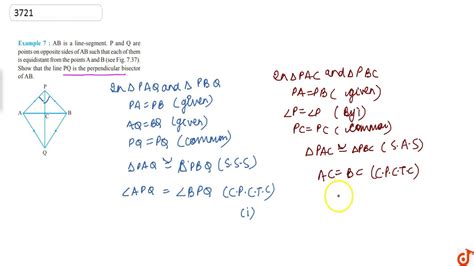 3721
Example 7 : AB is a line-segment. P and Q are
points on opposite sides of AB such that each of them
is equidistant from the points A and B (see Fig. 7.37).
Show that the line PQ is the perpendicular bisector
of AB.
P
A
C
B
Q
In △PAQ and △PBQ
PA=PB (given)
AQ=BQ (given)
PQ=PQ (common)
△PAQ ≅ △PBQ (S.S.S)
∠APQ = ∠BPQ (C.P.C.T.C)
(i)
In △PAC and △PBC
PA=PB (given)
∠P=∠P (By i)
PC=PC (common)
△PAC ≅ △PBC (S.A.S)
AC=BC (C.P.C.T.C)